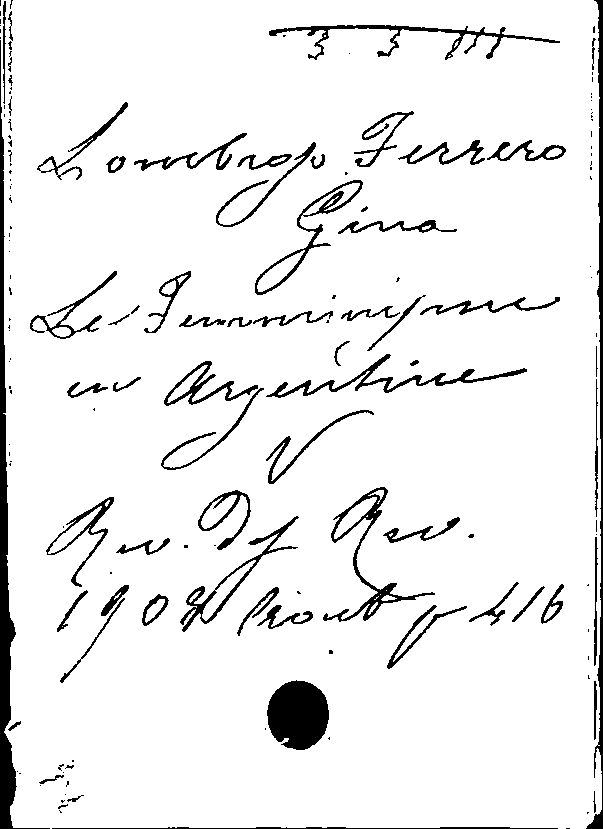 3 3 III
Lombroso Ferrero
Gina
Le Femminisme
en Argentine
V
Rev. des Rev.
1908 Aout p 416